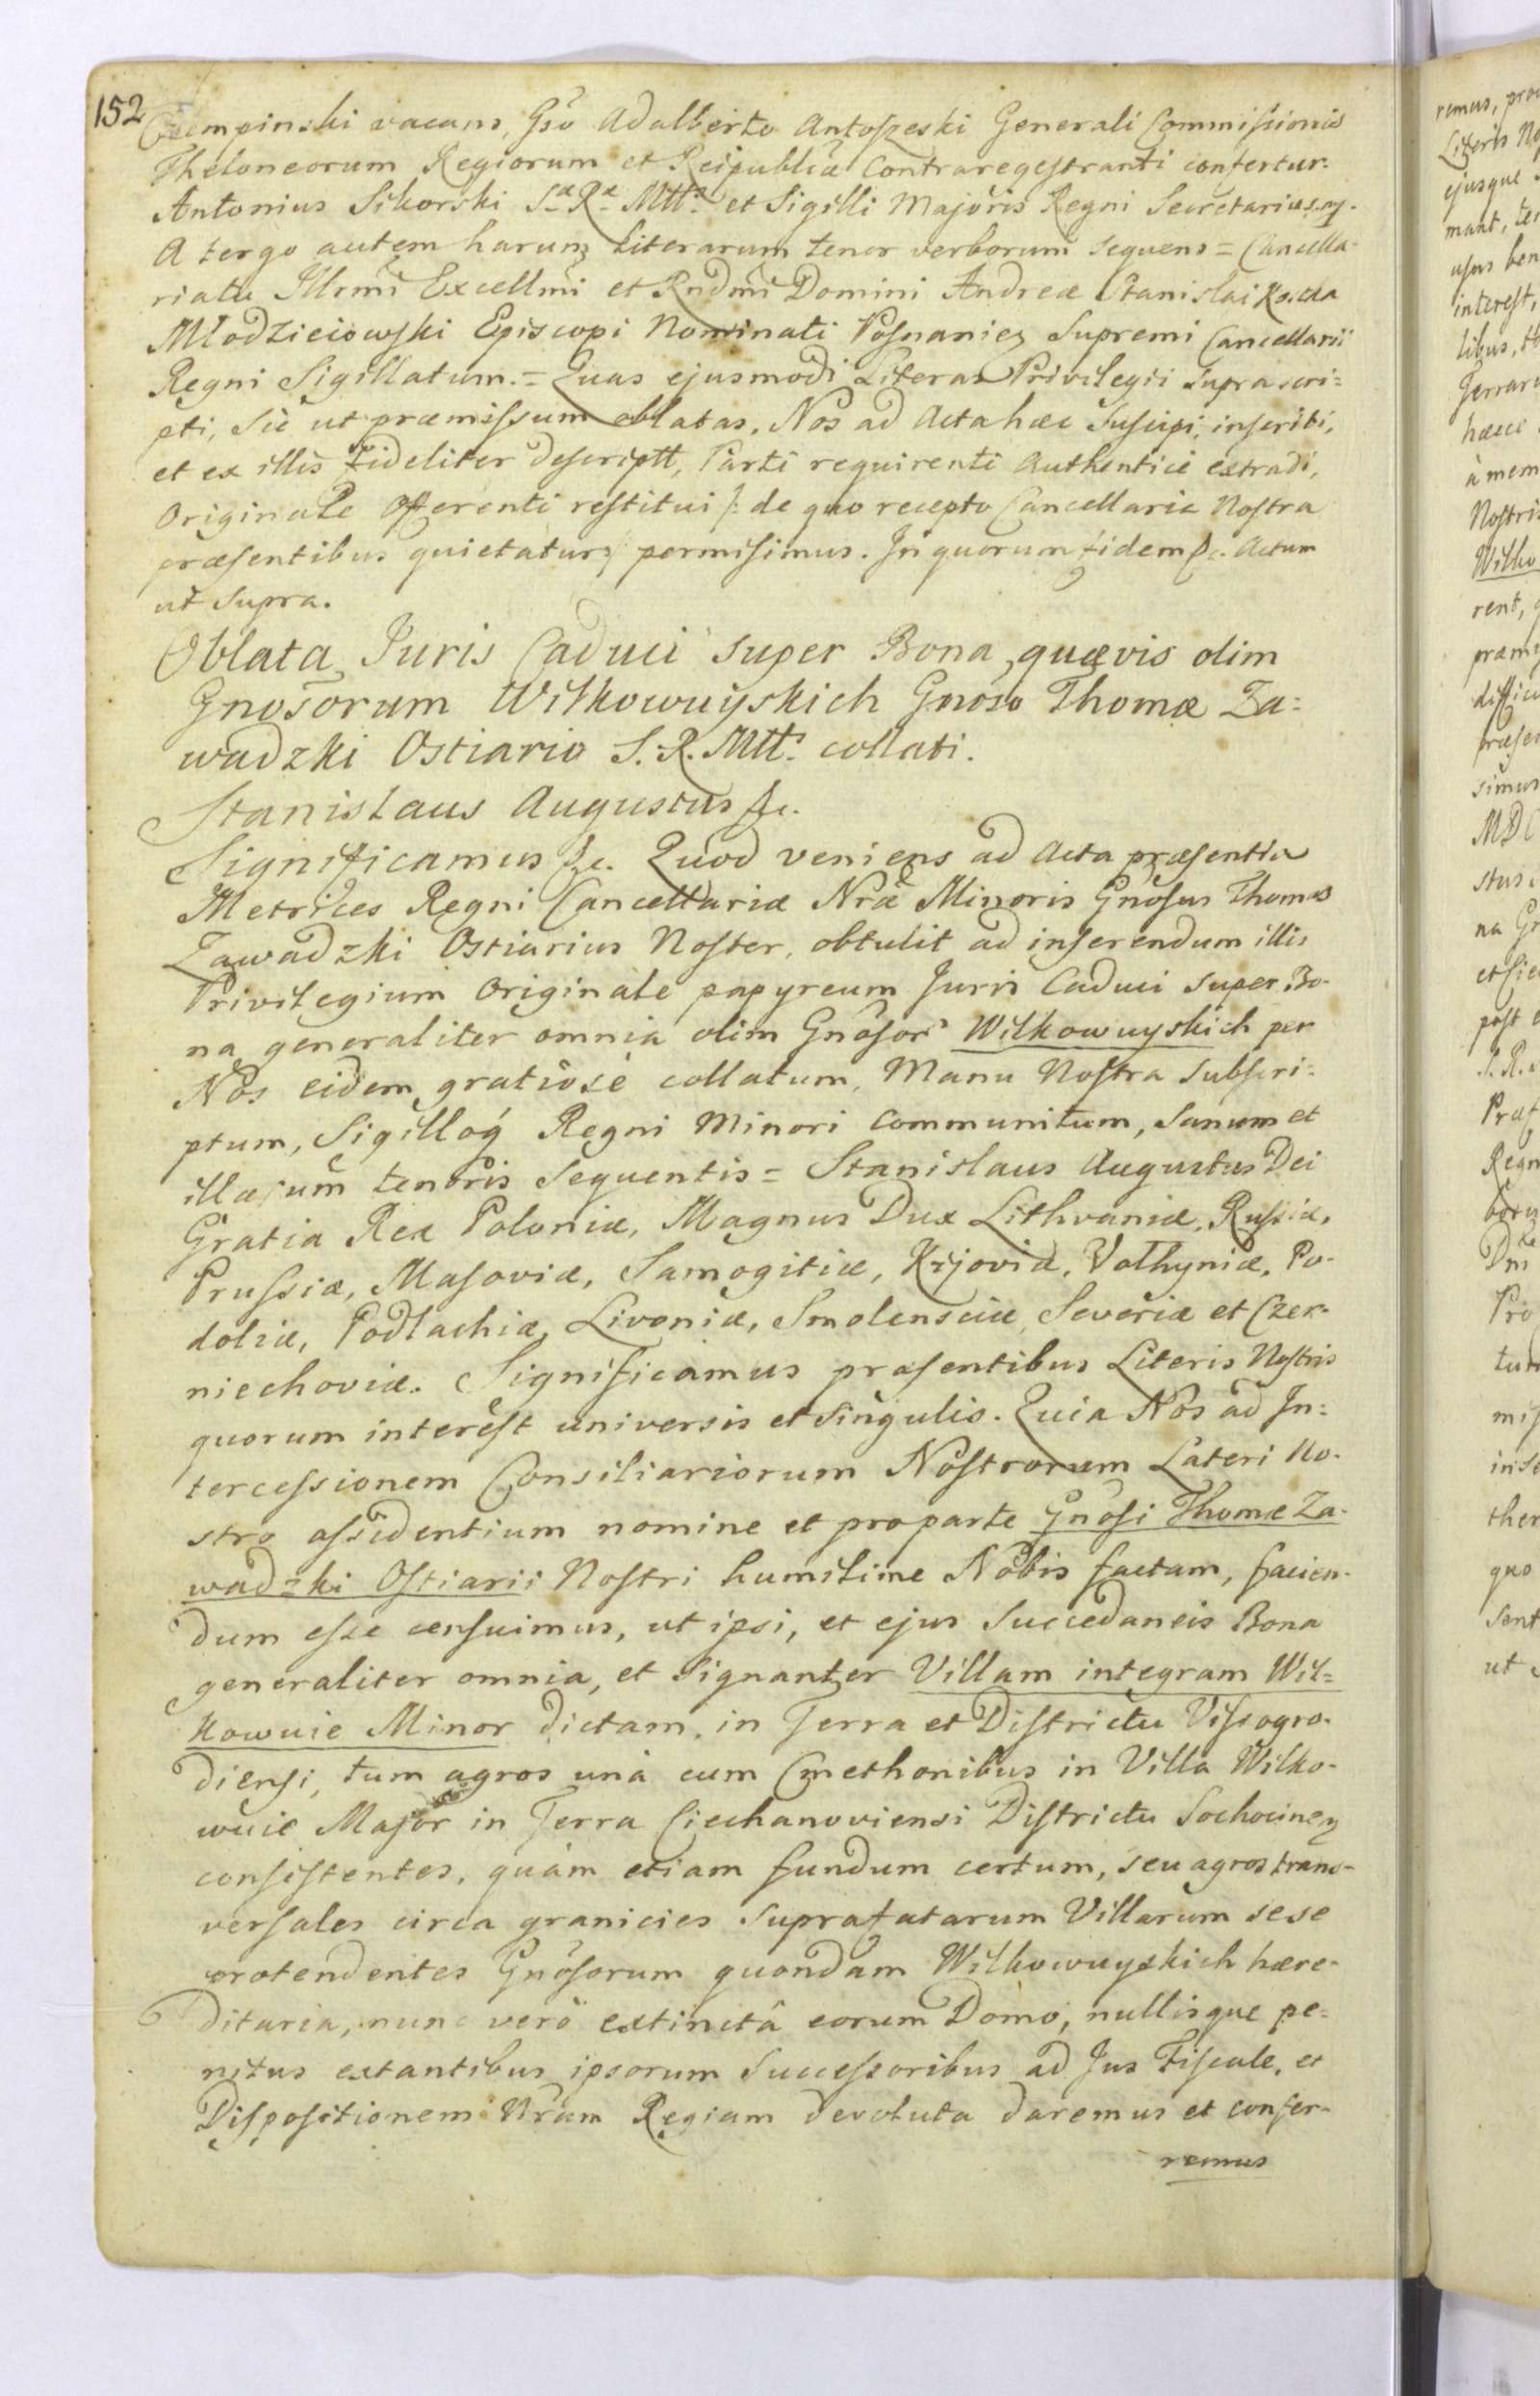 152
Czempinski vacans, Gso Adalberto Antoszeski Generali Commissionis
Theloneorum Regiorum et Reipublicæ Contraregestranti confertur.
Antonius Sikorski Sæ Ræ Mttis et Sigilli Majoris Regni Secretarius mp.
A tergo autem harum Literarum tenor verborum sequens = Cancella-
riatu Illrmi Excellmi et Rndmi Domini Andreæ Stanislai Kostka
Młodzieiowski Episcopi Nominati Posnanien Supremi Cancellarii
Regni Sigillatum. = Quas ejusmodi Literas Privilegii supra scri=
pti, sic ut præmissum oblatas, Nos ad Acta hæc suscipi, inscribi,
et ex illis fideliter descriptt, Parti requirenti Authentice extradi,
Originale Offerenti restitui /: de quo recepto Cancellaria Nostra
præsentibus quietatur :/ permisimus. In quorum fidem &c. Actum
ut supra.
Oblata Juris Caduci super Bona quævis olim
Gnosorum Wilkowuyskich Gnoso Thomæ Za=
wadzki Ostiario S. R. Mtt: collati.
Stanislaus Augustus &c.
Significamus &c. Quod veniens ad Acta præsentia
Metrices Regni Cancellariæ Nræ Minoris Gnosus Thomas
Zawadzki Ostiarius Noster, obtulit ad inserendum illis
Privilegium Originale papyreum Juris Caduci super Bo-
na generaliter omnia olim Gnosor Wilkowuyskich per
Nos eidem gratiose collatum, Manu Nostra subscri=
ptum, Sigilloq Regni Minori communitum, sanum et
illæsum tenoris sequentis = Stanislaus Augustus Dei
Gratia Rex Poloniæ, Magnus Dux Lithvaniæ, Russiæ,
Prussiæ, Masoviæ, Samogitiæ, Kijoviæ, Volhyniæ, Po-
doliæ, Podlachiæ, Livoniæ, Smolensciæ Severiæ et Czer-
niechoviæ. Significamus præsentibus Literis Nostris
quorum interest universis et singulis. Quia Nos ad In=
tercessionem Consiliariorum Nostrorum Lateri No-
stro assidentium nomine et pro parte Gnosi Thomæ Za-
wadzki Ostiarii Nostri humilime Nobis factam, facien-
dum esse censuimus, ut ipsi, et ejus Succedaneis Bona
generaliter omnia, et signanter Villam integram Wil=
kowuie Minor dictam, in Terra et Districtu Vissogro-
diensi, tum agros una cum Cmethonibus in Villa Wilko-
wuie Major in Terra Ciechanoviensi Districtu Sochocinen
consistentes, quam etiam fundum certum, seu agros trans-
versales circa granicies suprafatarum Villarum sese
protendentes Gnosorum quondam Wilkowuyskich hære-
ditaria, nunc vero extinctâ eorum Domo, nullisque pe=
nitus extantibus ipsorum Successoribus ad Jus Fiscale, et
Dispositionem Nram Regiam devoluta daremus et confer-
remus
remus,
Literis
ejusque
mant,
usus
interest,
libus,
hæcce
à mem
Nostris
Wilko
rent,
simus
MDC
stus
na
et sic
post
S. R.
Regn
Pro
ther
quo
ut